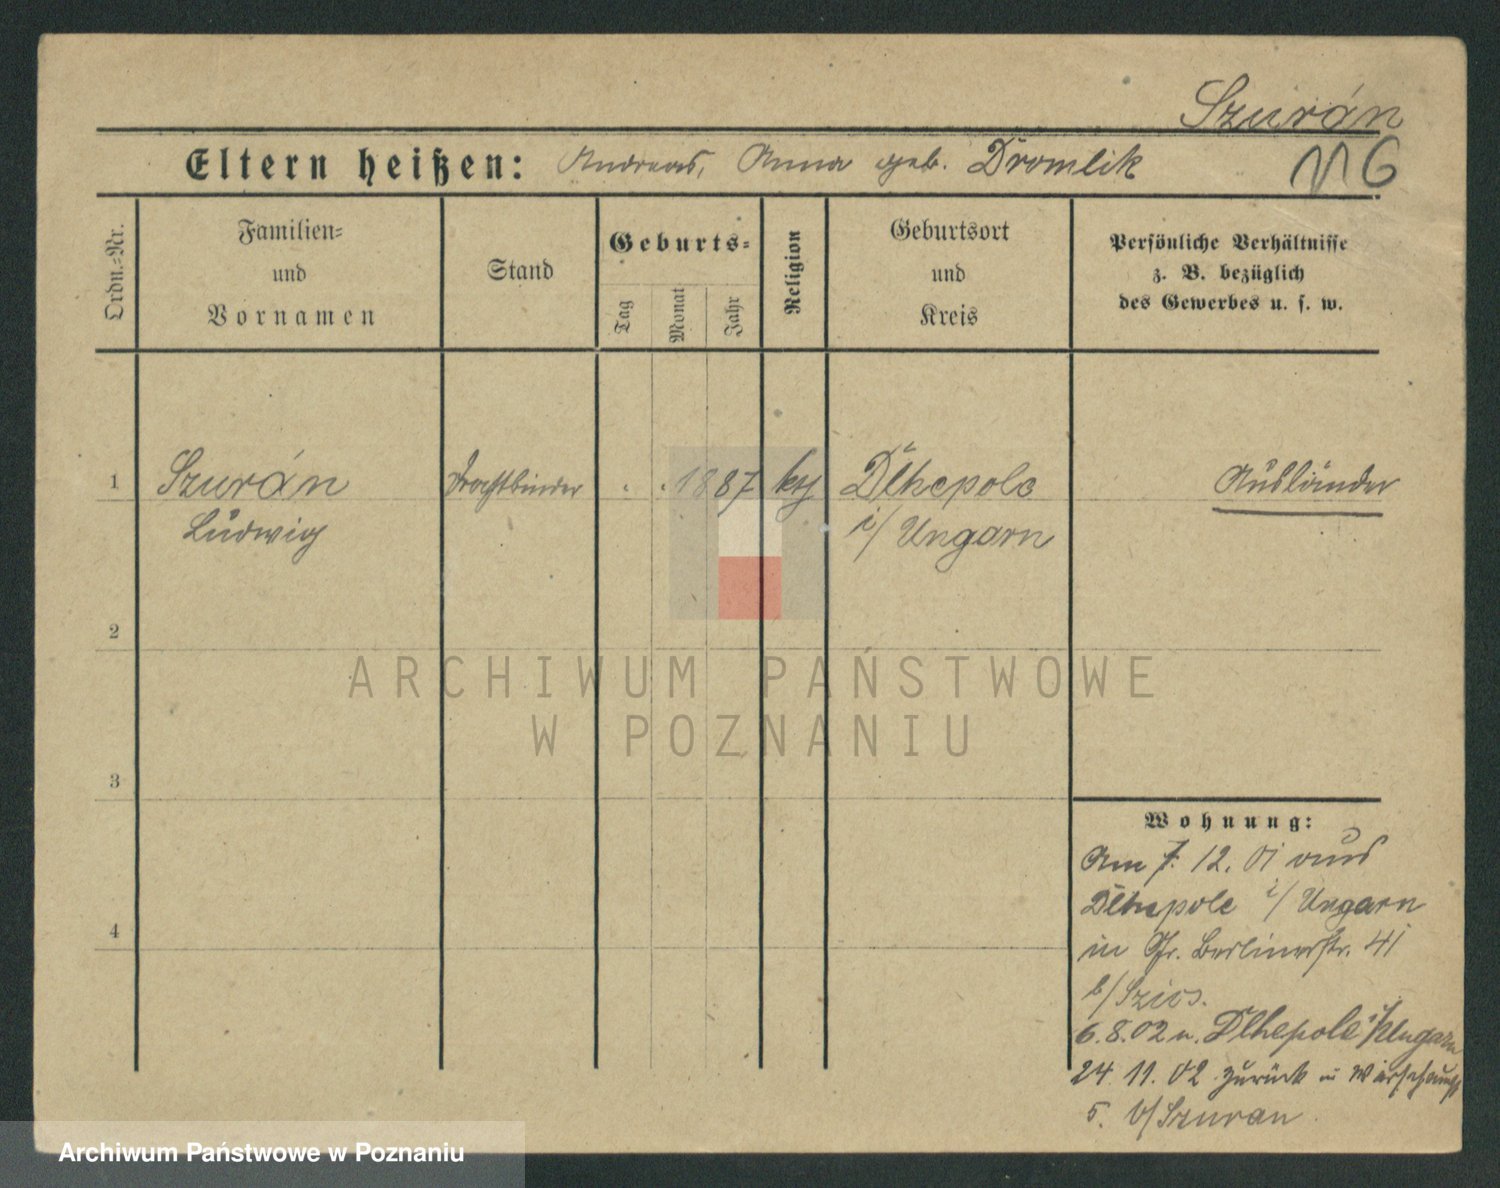 Szurán
Eltern heißen: Andreas, Anna geb. Dromlik
116
Ordn.-Nr.
Familien-
und
Vornamen
Stand
Geburts-
Tag
Monat
Jahr
Religion
Geburtsort
und
Kreis
Persönliche Verhältnisse
z. B. bezüglich
des Gewerbes u. s. w.
1 Szurán Drahtbinder . . 1887 Dlhepole Ausländer
Ludwig i/ Ungarn
2
3
4
ARCHIWUM PAŃSTWOWE
W POZNANIU
Wohnung:
Am 7. 12. 01 aus
Dlhepole i/ Ungarn
in Gr. Berlinerstr. 41
b/
6.8.02 n. Dlhepole i/Ungarn
24. 11. 02 zurück
5. b/ Szuran
Archiwum Państwowe w Poznaniu